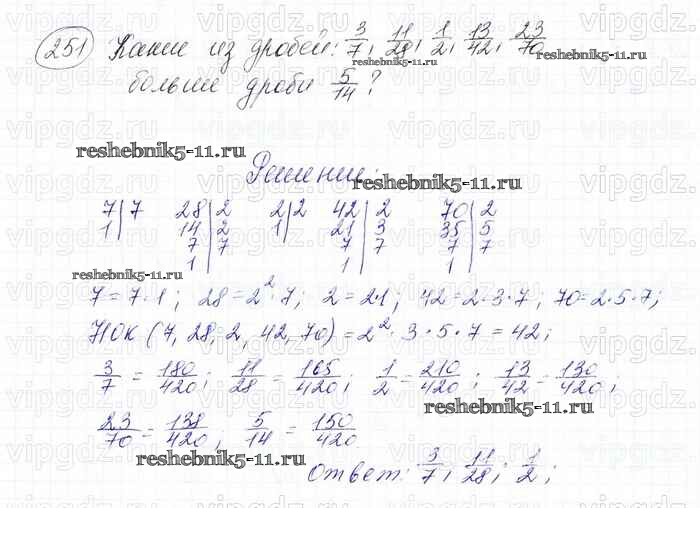 251 Какие из дробей: 3/7, 11/28, 1/2, 13/42, 23/70
больше дроби 5/14?
reshebnik5-11.ru
Решение:
7|7 28|2 2|2 42|2 70|2
1| 14|2 1| 21|3 35|5
7|7 7|7 7|7
1| 1| 1|
7=7·1; 28=2²·7; 2=2·1; 42=2·3·7, 70=2·5·7;
НОК (7, 28, 2, 42, 70) = 2²·3·5·7 = 42;
3/7 = 180/420; 11/28 = 165/420; 1/2 = 210/420; 13/42 = 130/420;
23/70 = 138/420; 5/14 = 150/420
Ответ: 3/7; 11/28; 1/2;